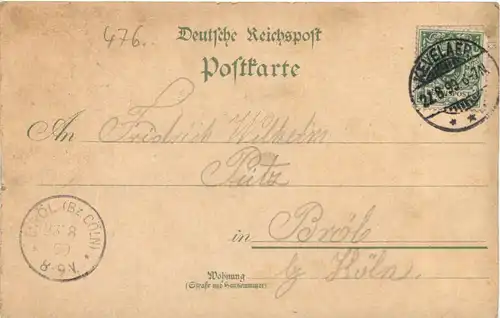 476.
Deutsche Reichspost
Postkarte
KEVELAER
27.8.99. 6-7N.
An Friedrich Wilhelm
Pütz
in Bröl
bz Köln.
BRÖL (Bz CÖLN)
8
8-9V.
Wohnung
(Straße und Hausnummer)